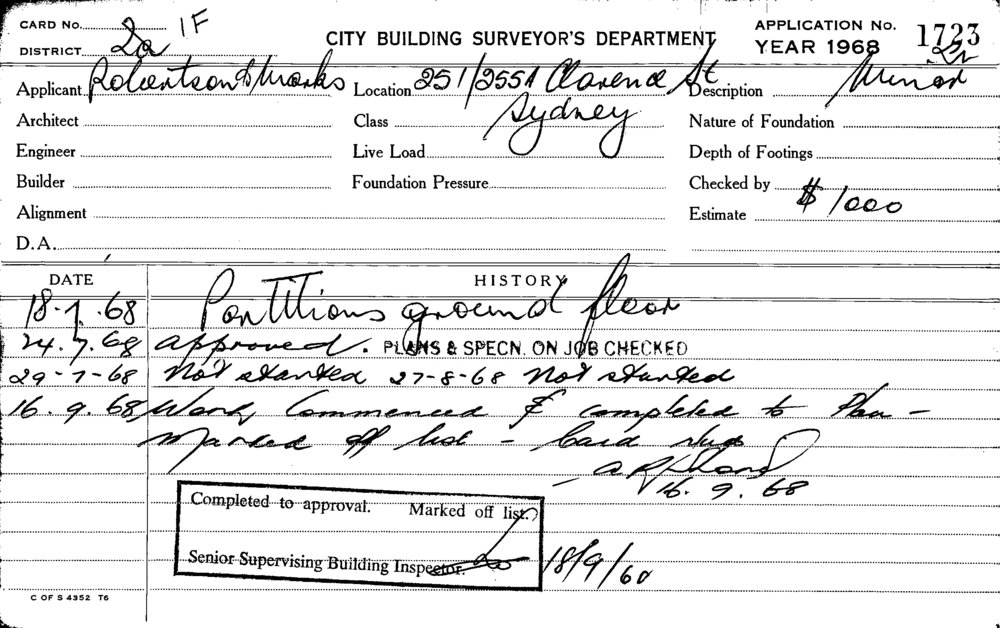 CARD No. 1F
CITY BUILDING SURVEYOR'S DEPARTMENT
APPLICATION No. 1723
DISTRICT 2a
YEAR 1968 2a
Applicant Robertson & Marks Location 251/255A Clarence St Description Minor
Architect Class Sydney Nature of Foundation
Engineer Live Load Depth of Footings
Builder Foundation Pressure Checked by
Alignment Estimate $1000
D.A.
DATE HISTORY
18.7.68 Partitions ground floor
24.7.68 approved. PLANS & SPECN. ON JOB CHECKED
29-7-68 Not started 27-8-68 Not started
16.9.68 Work Commenced & completed to Plan -
Marked off list - Card
16.9.68
Completed to approval. Marked off list.
Senior Supervising Building Inspector. 18/9/68
C OF S 4352 T6